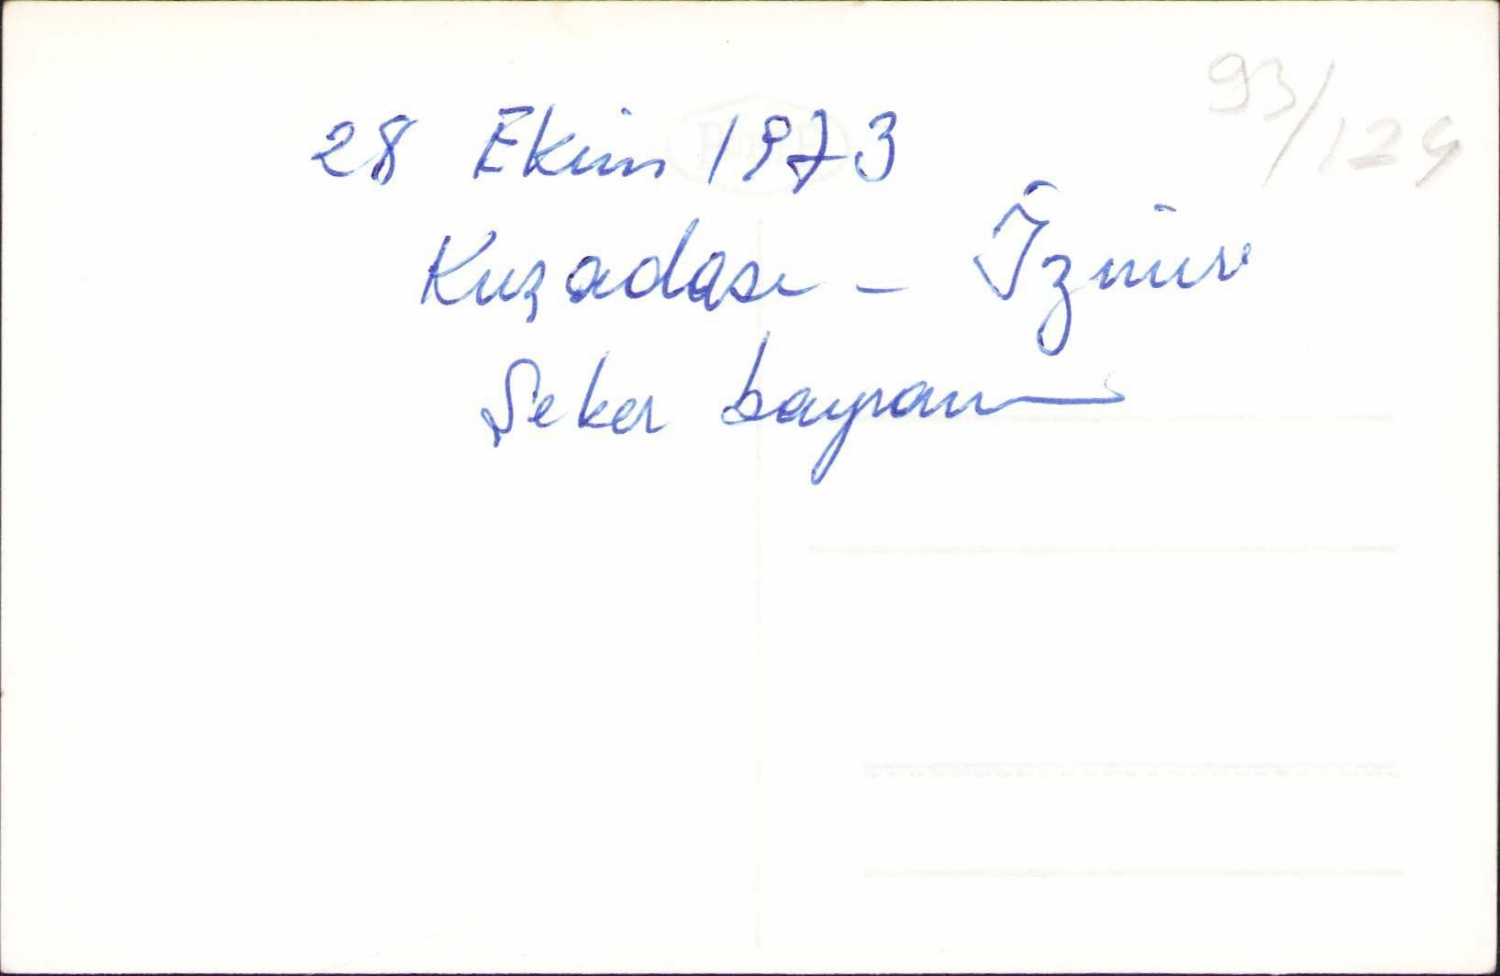 93/124
28 Ekim 1973
Kuşadası - İzmir
Şeker bayramı